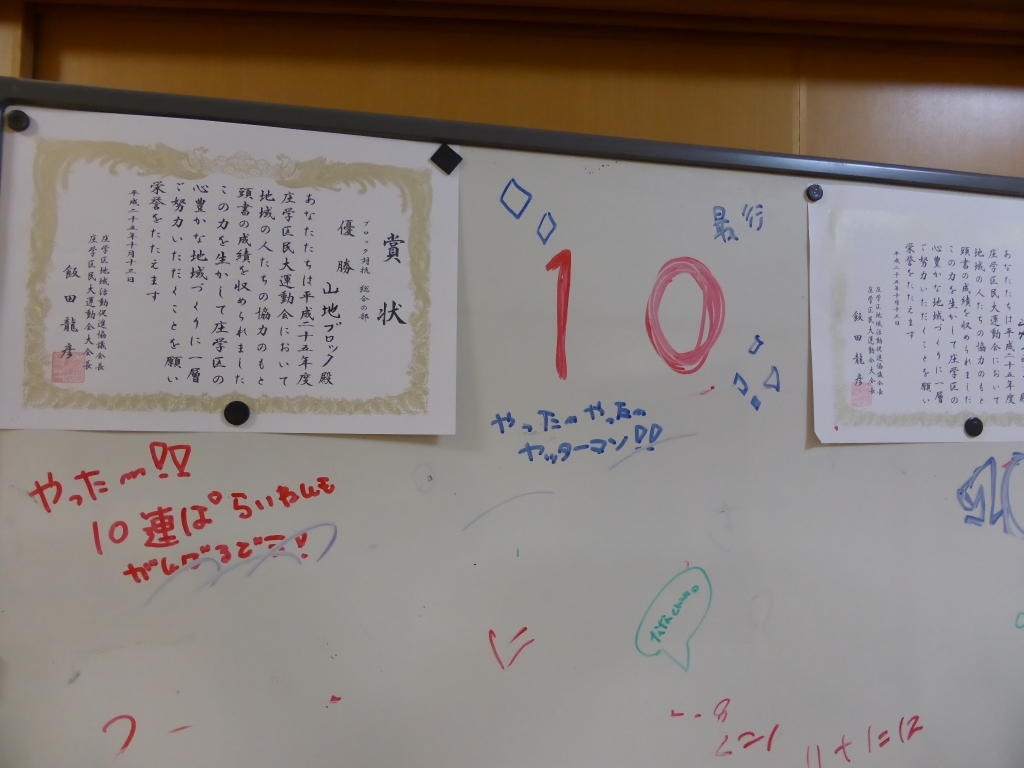 賞状
ブロック対抗 総合の部
優勝 山地ブロック殿
あなたたちは平成二十五年度
庄学区民大運動会において
地域の人たちの協力のもと
頭書の成績を収められました
この力を生かして庄学区の
心豊かな地域づくりに一層
ご努力いただくことを願い
栄誉をたたえます
平成二十五年十月十三日
庄学区地域活動促進協議会長
庄学区民大運動会大会長
飯田龍彦
10
やった〜やった〜
ヤッターマン!!
やった〜!!
10連ぱ らいねんも
がんばるぞ!!
あなたたちは平成二十五年度
庄学区民大運動会において
地域の人たちの協力のもと
頭書の成績を収められました
この力を生かして庄学区の
心豊かな地域づくりに一層
ご努力いただくことを願い
栄誉をたたえます
平成二十五年十月十三日
庄学区地域活動促進協議会長
庄学区民大運動会大会長
飯田龍彦
8
7=1
11+1=12